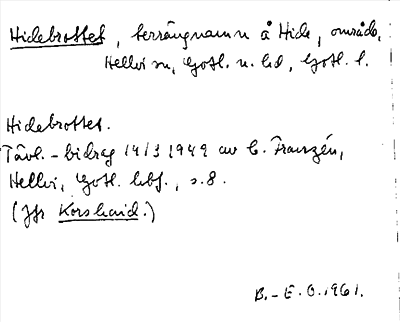 Hidebrottet, terrängnamn å Hide, område,
Hellvi sn, Gotl. n. hd, Gotl. l.
Hidebrottet.
Tävl.-bidrag 14/3 1949 av C. Franzén,
Hellvi, Gotl. hbf., s. 8.
(Jfr Korshaid.)
B.-E. O. 1961.